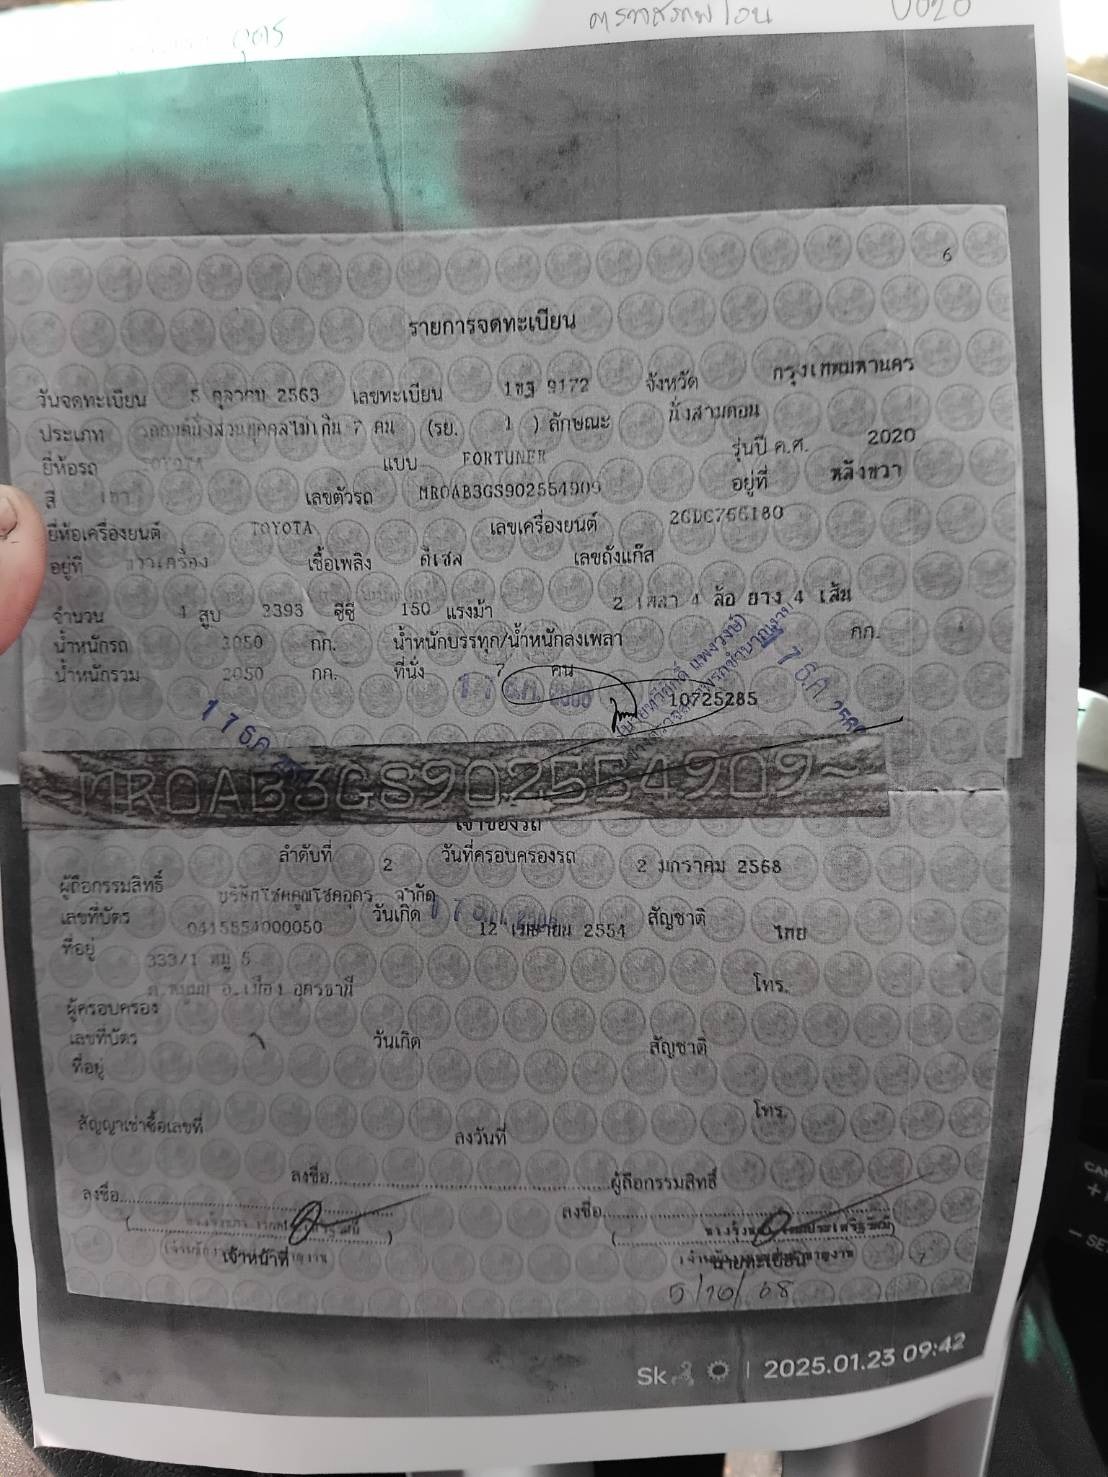 ตรวจสภาพ/โอน
อุดร
6
รายการจดทะเบียน
วันจดทะเบียน 5 ตุลาคม 2563 เลขทะเบียน 9172 จังหวัด กรุงเทพมหานคร
ประเภท รถยนต์นั่งส่วนบุคคลไม่เกิน 7 คน (รย. 1 ) ลักษณะ นั่งสามตอน
ยี่ห้อรถ TOYOTA แบบ FORTUNER รุ่นปี ค.ศ. 2020
สี เทา เลขตัวรถ MR0AB3GS902554909 อยู่ที่ หลังขวา
ยี่ห้อเครื่องยนต์ TOYOTA เลขเครื่องยนต์ 2GDC756180
อยู่ที่ ขวาเครื่อง เชื้อเพลิง ดีเซล เลขถังแก๊ส
จำนวน 4 สูบ 2393 ซีซี 150 แรงม้า 2 เพลา 4 ล้อ ยาง 4 เส้น
น้ำหนักรถ 2050 กก. น้ำหนักบรรทุก/น้ำหนักลงเพลา กก.
น้ำหนักรวม 2050 กก. ที่นั่ง 7 คน
10725285
17 ธ.ค.
~MR0AB3GS902554909~
เจ้าของรถ
ลำดับที่ 2 วันที่ครอบครองรถ 2 มกราคม 2568
ผู้ถือกรรมสิทธิ์ บริษัทโชคคูณโชคอุดร จำกัด
เลขที่บัตร 0415554000050 วันเกิด 12 เมษายน 2554 สัญชาติ ไทย
ที่อยู่ 333/1 หมู่ 5
อ.เมือง อุดรธานี โทร.
ผู้ครอบครอง
เลขที่บัตร วันเกิด สัญชาติ
ที่อยู่
โทร.
สัญญาเช่าซื้อเลขที่ ลงวันที่
ลงชื่อ ผู้ถือกรรมสิทธิ์
ลงชื่อ ลงชื่อ
เจ้าหน้าที่ นายทะเบียน
2025.01.23 09:42